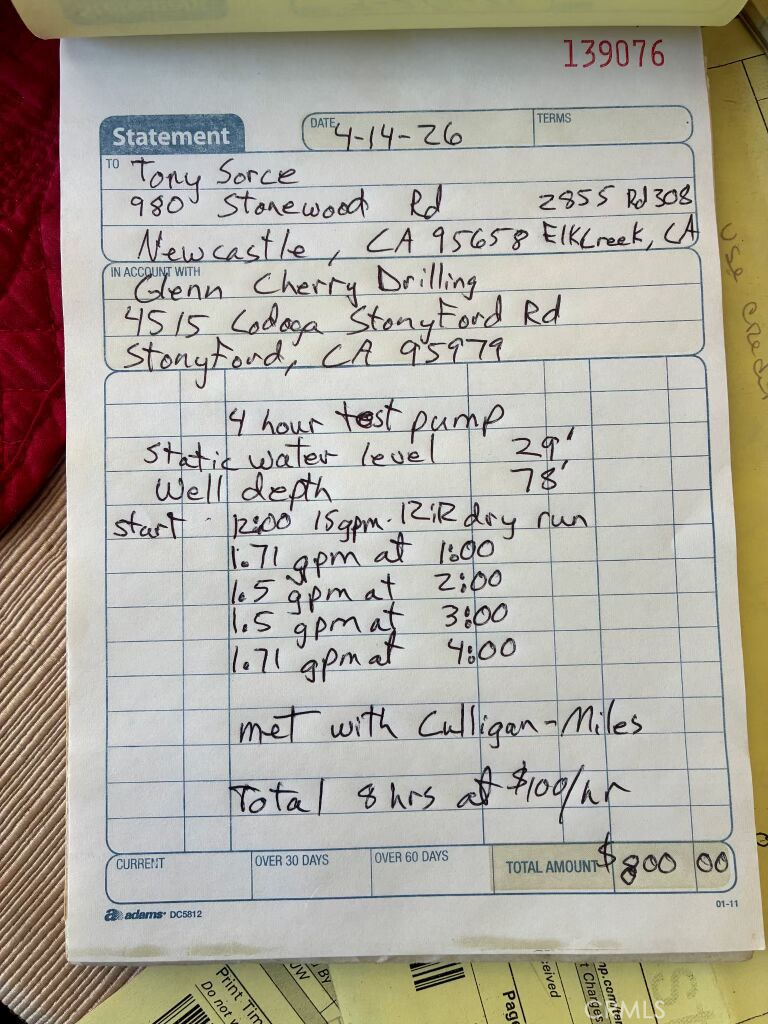 139076
Statement
DATE 4-14-26
TERMS
TO Tony Sorce
980 Stonewood Rd 2855 Rd 308
Newcastle, CA 95658 Elk Creek, CA
IN ACCOUNT WITH
Glenn Cherry Drilling
4515 Lodoga Stonyford Rd
Stonyford, CA 95979
4 hour test pump
Static water level 29'
Well depth 78'
start 12:00 15gpm - 12:12 dry run
1.71 gpm at 1:00
1.5 gpm at 2:00
1.5 gpm at 3:00
1.71 gpm at 4:00
met with Culligan-Miles
Total 8 hrs at $100/hr
CURRENT
OVER 30 DAYS
OVER 60 DAYS
TOTAL AMOUNT $800 00
adams DC5812
01-11
use
Print Tim
Do not
BY
Page
ceived
t Charges
CRMLS